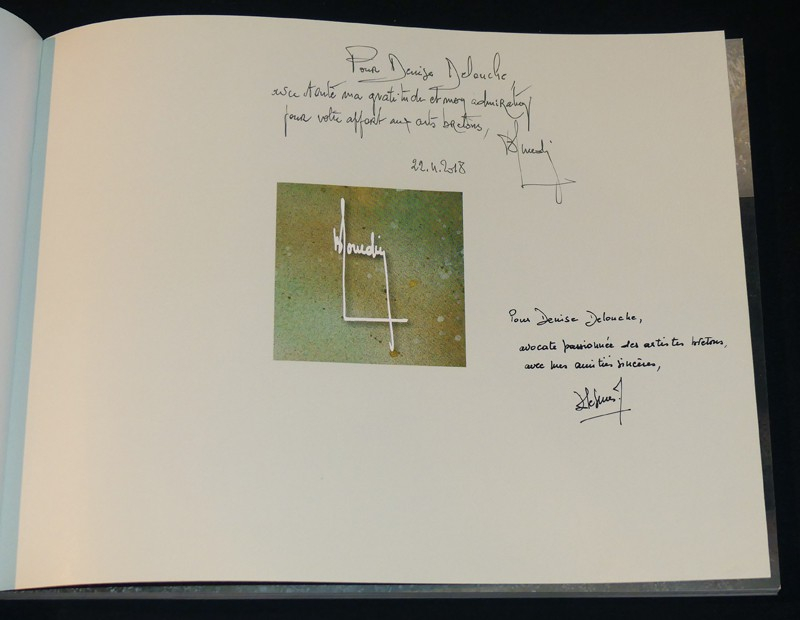 Pour Denise Delouche,
avec toute ma gratitude et mon admiration
pour votre apport aux arts bretons,
22.11.2018
Pour Denise Delouche,
avocate passionnée des artistes bretons,
avec mes amitiés sincères,